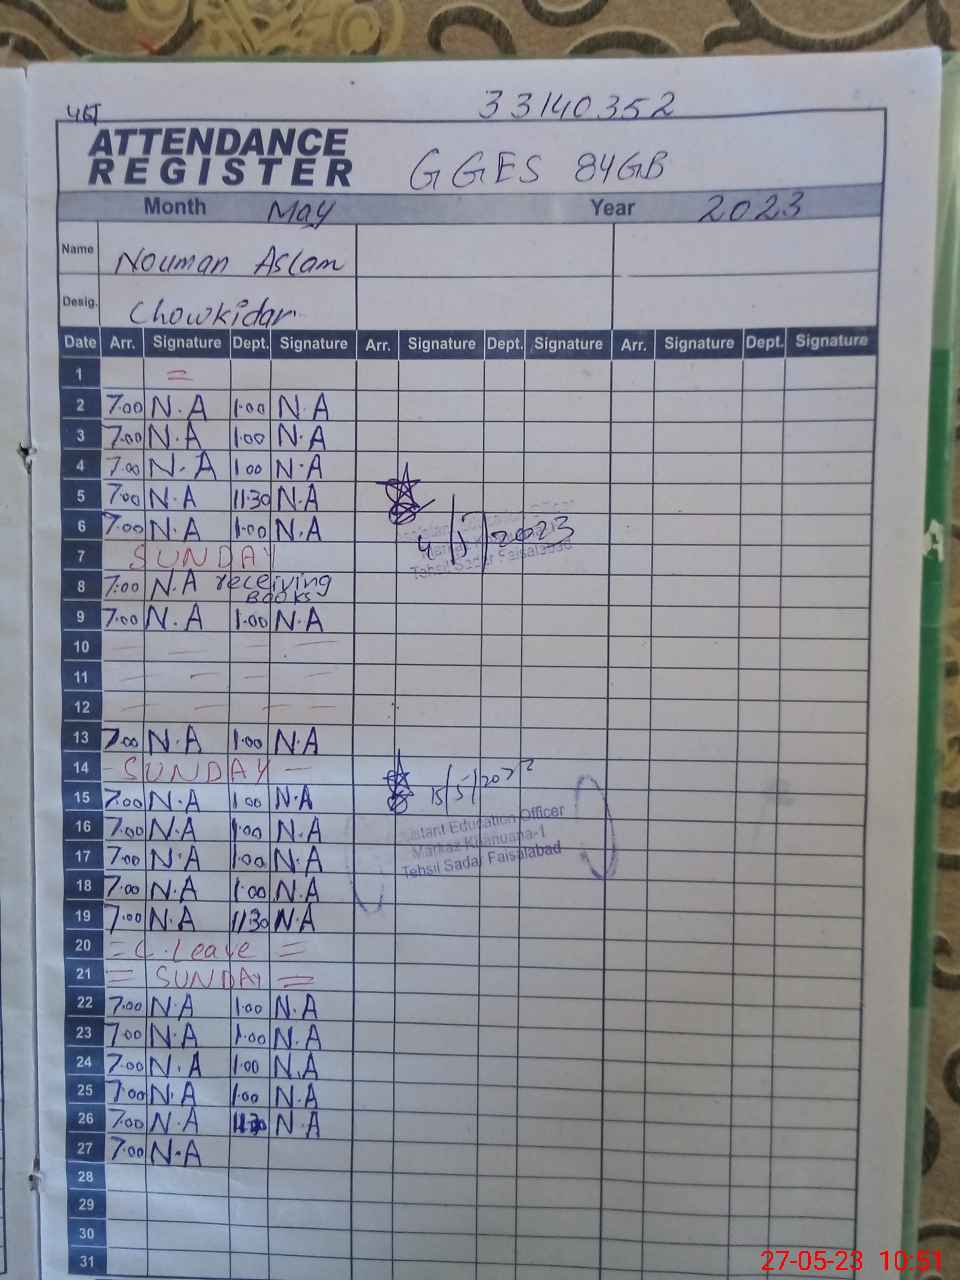 33140352
ATTENDANCE
REGISTER
GGES 84GB
Month May Year 2023
Name Nouman Aslam
Desig. Chowkidar
Date Arr. Signature Dept. Signature Arr. Signature Dept. Signature Arr. Signature Dept. Signature
1 =
2 7:00 N.A 1:00 N.A
3 7:00 N.A 1:00 N.A
4 7:00 N.A 1:00 N.A
5 7:00 N.A 11:30 N.A
6 7:00 N.A 1:00 N.A
4/5/2023
7 SUNDAY
Tehsil Sadar Faisalabad
8 7:00 N.A receiving
BOOKS
9 7:00 N.A 1:00 N.A
10 — — — —
11 — — — —
12 — — — —
13 7:00 N.A 1:00 N.A
14 - SUNDAY -
15 7:00 N.A 1:00 N.A 15/5/202
16 7:00 N.A 1:00 N.A
Education Officer
17 7:00 N.A 1:00 N.A
Tehsil Sadar Faisalabad
18 7:00 N.A 1:00 N.A
19 7:00 N.A 11:30 N.A
20 = C. Leave =
21 = SUNDAY =
22 7:00 N.A 1:00 N.A
23 7:00 N.A 1:00 N.A
24 7:00 N.A 1:00 N.A
25 7:00 N.A 1:00 N.A
26 7:00 N.A 11:30 N.A
27 7:00 N.A
28
29
30
31
27-05-23 10:51